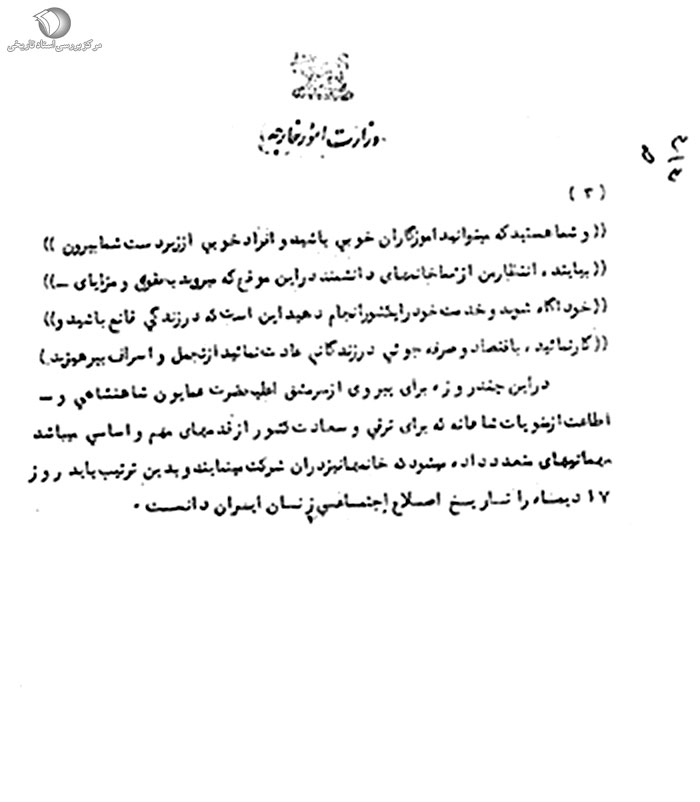 مرکز بررسی اسناد تاریخی
وزارت امور خارجه
۳
۳
۵
(۳)
((و شما هستید که میتوانید آموزگاران خوبی باشید و افراد خوبی از زیر دست شما بیرون))
((بیایند، انتظار من از شما خانمهای دانشمند در این موقع که میروید بحقوق و مزایای ـ))
((خود آگاه شوید و خدمت خود را بکشور انجام دهید این است که در زندگی قانع باشید و))
((کار نمائید، باقتصاد و صرفه جوئی در زندگانی عادت نمائید از تجمل و اسراف بپرهیزید)
در این چند روزه برای پیروی از سرمشق اعلیحضرت همایون شاهنشاهی و ـ
اطاعت از منویات شاهانه که برای ترقی و سعادت کشور از قدمهای مهم و اساسی میباشد
مهمانیهای متعدد داده میشود که خانمها نیز در آن شرکت مینمایند و بدین ترتیب باید روز
۱۷ دیماه را تاریخ اصلاح اجتماعی زنان ایران دانست.